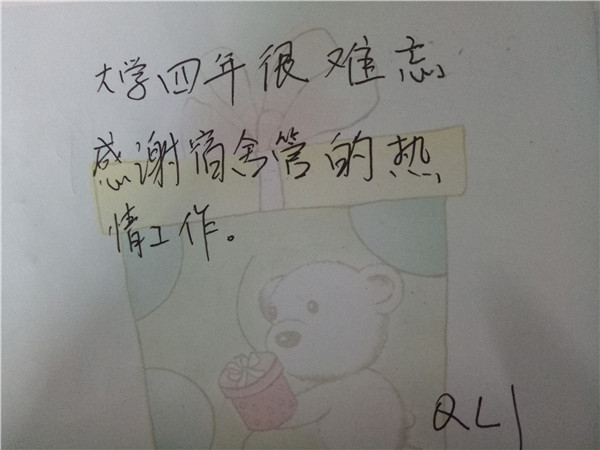 大学四年很难忘
感谢宿舍管的热
情工作。
QLJ